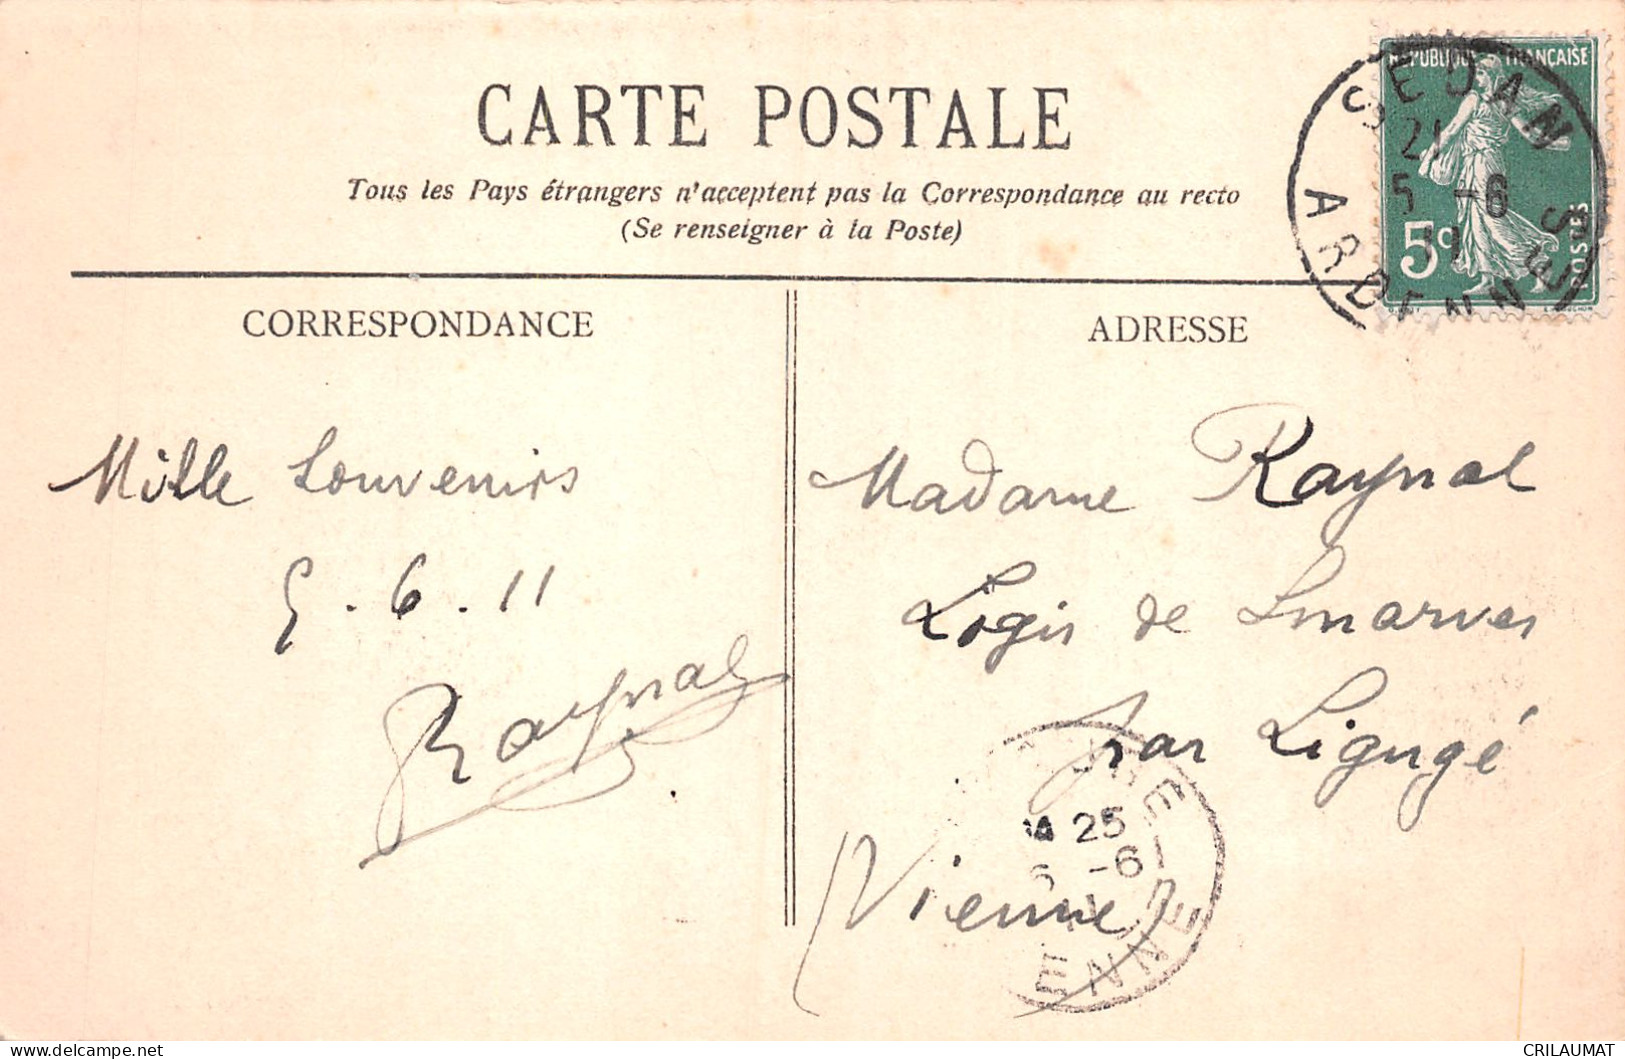 CARTE POSTALE
Tous les Pays étrangers n'acceptent pas la Correspondance au recto
(Se renseigner à la Poste)
REPUBLIQUE FRANÇAISE
5c
POSTES
SEDAN
21
5 -6
11
ARDENNES
CORRESPONDANCE
Mille Souvenirs
5.6.11
Raynal
ADRESSE
Madame Raynal
Logis de Smarves
par Ligugé
(Vienne)
25
6 -6
VIENNE
CRILAUMAT